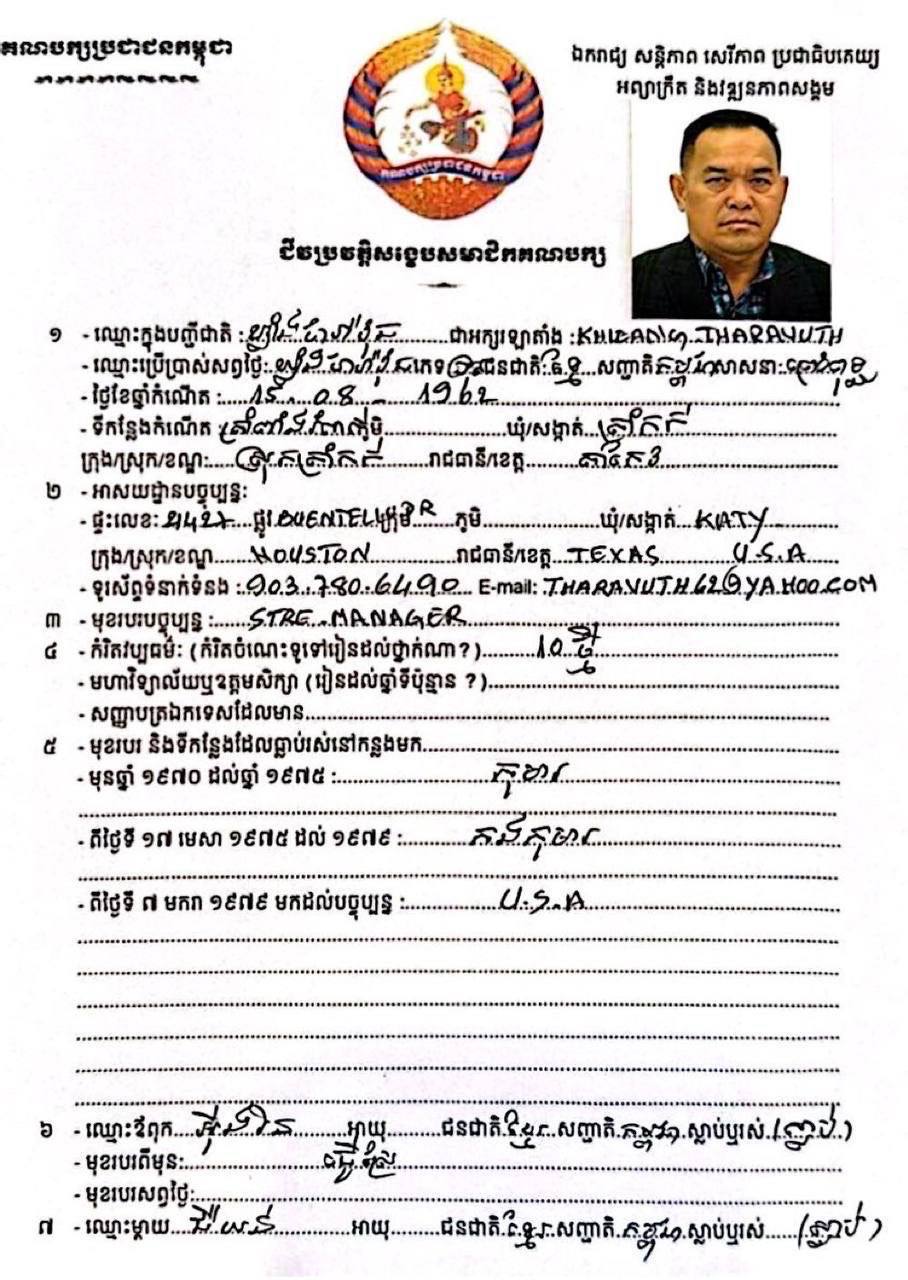 គណបក្សប្រជាជនកម្ពុជា
ឯករាជ្យ សន្តិភាព សេរីភាព ប្រជាធិបតេយ្យ
អព្យាក្រឹត និងវឌ្ឍនភាពសង្គម
គណបក្សប្រជាជនកម្ពុជា
ជីវប្រវត្តិសង្ខេបសមាជិកគណបក្ស
១ - ឈ្មោះក្នុងបញ្ជីជាតិ : ជាអក្សរឡាតាំង : KHEANG THARAVUTH
- ឈ្មោះប្រើប្រាស់សព្វថ្ងៃ: ភេទ ប្រុស ជនជាតិ: ខ្មែរ សញ្ជាតិ កម្ពុជា សាសនា: ព្រះពុទ្ធ
- ថ្ងៃខែឆ្នាំកំណើត : 15 - 08 - 1962
- ទីកន្លែងកំណើត ភូមិ ឃុំ/សង្កាត់ ត្រាំកក់
ក្រុង/ស្រុក/ខណ្ឌ: ស្រុកត្រាំកក់ រាជធានី/ខេត្ត តាកែវ
២ - អាសយដ្ឋានបច្ចុប្បន្ន:
- ផ្ទះលេខ: ផ្លូវ ក្រុមទី ភូមិ ឃុំ/សង្កាត់ KATY
ក្រុង/ស្រុក/ខណ្ឌ HOUSTON រាជធានី/ខេត្ត TEXAS U.S.A
- ទូរស័ព្ទទំនាក់ទំនង : 903.780.6490 E-mail: THARAVUTH62@YAHOO.COM
៣ - មុខរបរបច្ចុប្បន្ន : STRE MANAGER
៤ - កំរិតវប្បធម៌: (កំរិតចំណេះទូទៅរៀនដល់ថ្នាក់ណា?) 10 ថ្មី
- មហាវិទ្យាល័យឬឧត្តមសិក្សា (រៀនដល់ឆ្នាំទីប៉ុន្មាន ?)
- សញ្ញាបត្រឯកទេសដែលមាន
៥ - មុខរបរ និងទីកន្លែងដែលធ្លាប់រស់នៅកន្លងមក
- មុនឆ្នាំ ១៩៧០ ដល់ឆ្នាំ ១៩៧៥ : កុមារ
- ពីថ្ងៃទី ១៧ មេសា ១៩៧៥ ដល់ ១៩៧៩ : កងកុមារ
- ពីថ្ងៃទី ៧ មករា ១៩៧៩ មកដល់បច្ចុប្បន្ន : U.S.A
៦ - ឈ្មោះឪពុក អាយុ ជនជាតិ ខ្មែរ សញ្ជាតិ កម្ពុជា ស្លាប់ឬរស់ (ស្លាប់)
- មុខរបរពីមុន: ធ្វើស្រែ
- មុខរបរសព្វថ្ងៃ:
៧ - ឈ្មោះម្តាយ អាយុ ជនជាតិ ខ្មែរ សញ្ជាតិ កម្ពុជា ស្លាប់ឬរស់ (ស្លាប់)